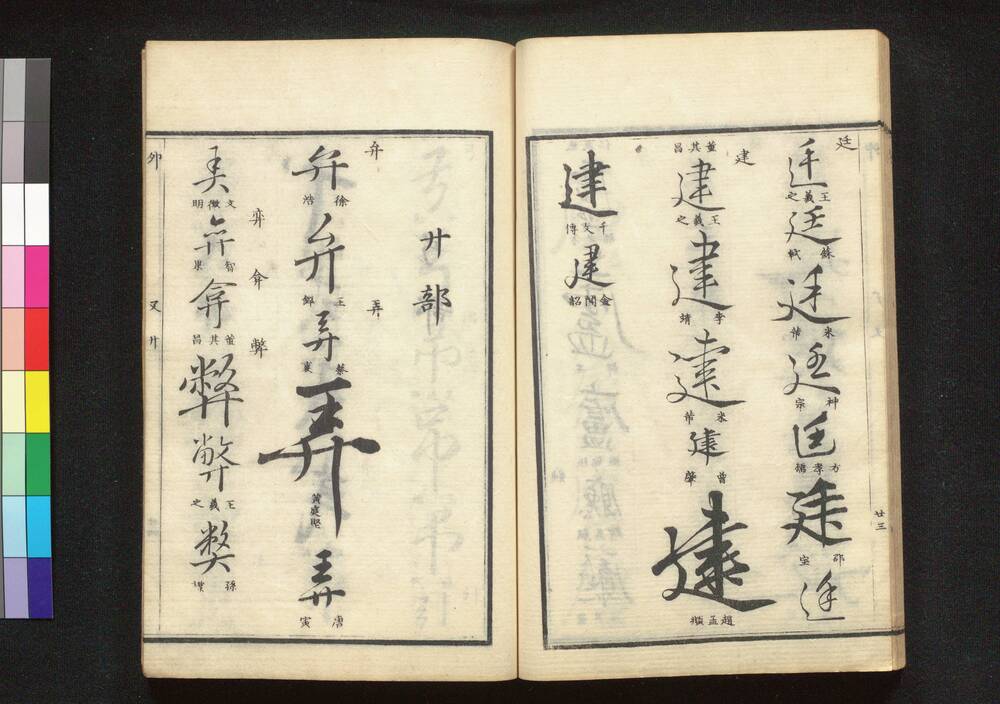 廷
廷
王羲之
廷
蘇軾
廷
米芾
廷
神宗
匡
方孝孺
廷
邵宝
廷
廿三
建
董其昌
建
王羲之
建
李靖
建
米芾
建
曾肇
建
趙孟頫
建
干文傳
建
金聞韶
廾部
弁
弁
徐浩
弁
王鐸
弄
弄
蔡襄
弄
黄庭堅
弄
唐寅
弈
弇
弊
文徵明
弈
智果
弇
董其昌
弊
弊
王羲之
弊
孫